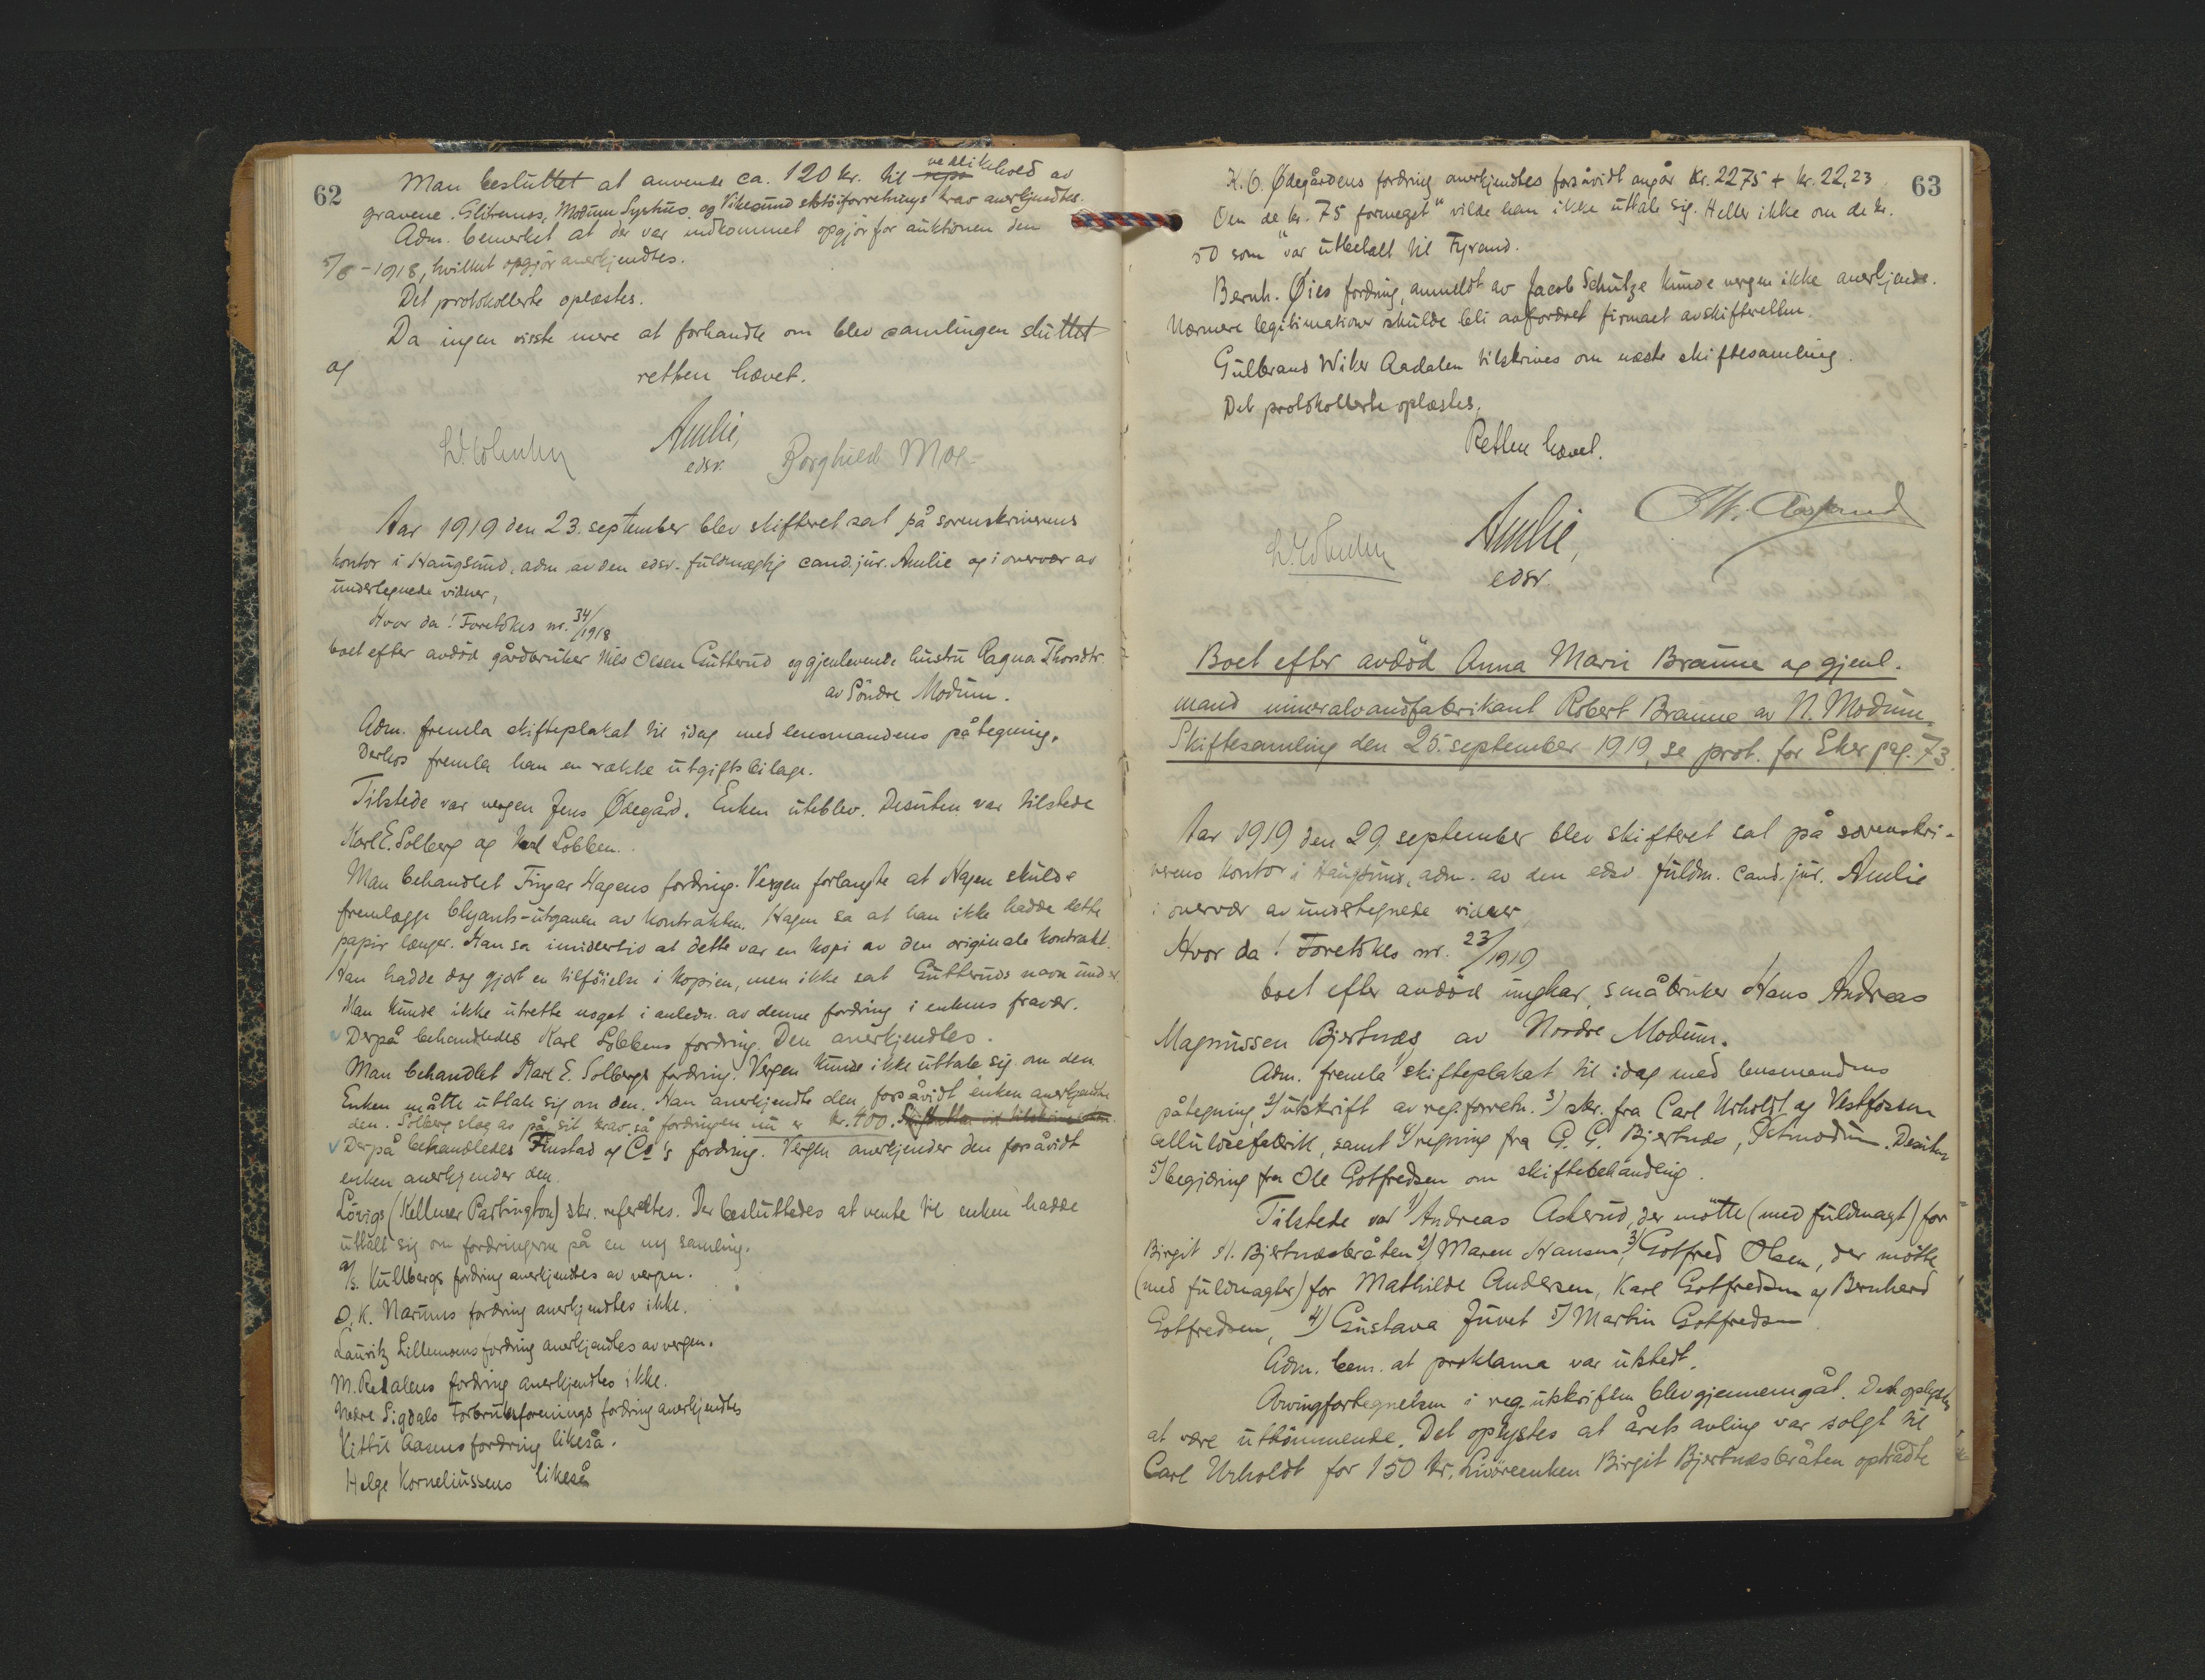 62
Man besluttet at anvende ca. 120 kr. til repa vedlikehold av
gravene. Glitranos, Modum Systuas og Vikesund skotöiforretnings krav anerkjendtes.
Adm. bemerket at der var indkommet opgjör for auktionen den
5/6 - 1918, hvilket opgjör anerkjendtes.
Det protokollerte oplæstes.
Da ingen visste mere at forhandle om blev samlingen sluttet
og
retten hævet.
Amlie,
edsv.
Borghild Moe.
Aar 1919 den 23. september blev skifteret sat på sorenskriverens
kontor i Haugsund, adm. av den edsv. fuldmægtig cand. jur. Amlie og i overvær av
undertegnede vidner,
Hvor da! Foretokes nr. 34/1918
boet efter avdöd gårdbruker Nils Olsen Gutterud og gjenlevende hustru Ragna Thorsdtr.
av Söndre Modum.
Adm. fremla skifteplakat til idag med lensmandens påtegning.
Derhos fremla han en række utgiftsbilage.
Tilstede var vergen Jens Ødegård. Enken uteblev. Desuten var tilstede
Karl E. Solberg og Karl Lobben.
Man behandlet Fingar Hagens fordring. Vergen forlangte at Hagen skulde
fremlægge blyants-utgaven av kontrakten. Hagen sa at han ikke hadde dette
papir længer. Han sa imidlertid at dette var en kopi av den originale kontrakt.
Han hadde dog gjort en tilföielse i kopien, men ikke sat Gutteruds navn under.
Man kunde ikke utrette noget i anledn. av denne fordring i enkens fravær.
Derpå behandledes Karl Lobbens fordring. Den anerkjendtes.
Man behandlet Karl E. Solbergs fordring. Vergen kunde ikke uttale sig om den.
Enken måtte uttale sig om den. Han anerkjendte den, forsåvidt enken anerkjendte
den. Solberg slog av på sit krav, så fordringen nu er kr. 400.
Derpå behandledes Finstad og Co's fordring. Vergen anerkjender den forsåvidt
enken anerkjender den.
Lövigs (Kellner Partington) skr. refereltes. Der besluttedes at vente til enken hadde
uttalt sig om fordringerne på en ny samling.
A/S. Kullbergs fordring anerkjendtes av vergen.
O. K. Narums fordring anerkjendtes ikke.
Lauritz Lillemoens fordring anerkjendtes av vergen.
M. Redalens fordring anerkjendtes ikke.
Nedre Sigdals Forbruksforenings fordring anerkjendtes
Kittil Aasens fordring likeså.
Helge Korneliussens likeså
63
K. O. Ødegårdens fordring anerkjendtes forsåvidt angår kr. 2275 + kr. 22,23
Om de kr. 75 "formeget" vilde han ikke uttale sig. Heller ikke om de kr.
50 som var utbetalt til Fyrand.
Bernh. Øies fordring, anmeldt av Jacob Schütze kunde vergen ikke anerkjende.
Nærmere legitimationer skulde bli avfordret firmaet av skifteretten.
Gulbrand Wiker Aadalen tilskrives om næste skiftesamling.
Det protokollerte oplæstes.
Retten hævet.
Amlie,
edsv.
Boet efter avdöd Anna Marie Braune og gjenl.
mand mineralvandfabrikant Robert Braune av N. Modum.
Skiftesamling den 25. september 1919, se prot. for Eker pag. 73.
Aar 1919 den 29 september blev skifteret sat på sorenskri-
verens kontor i Haugsund, adm. av den edsv. fuldm. cand. jur. Amlie
i overvær av undertegnede vidner
Hvor da! Foretokes nr. 23/1919
boet efter avdöd ungkar, småbruker Hans Andreas
Magnussen Bjertnæs av Nordre Modum.
Adm. fremla 1) skifteplakat til idag med lensmandens
påtegning, 2) utskrift av reg.forretn. 3) skr. fra Carl Urholdt og Vestfossen
cellulosefabrik, samt 4) regning fra G. G. Bjertnæs, Östmodum. Desuten
5) begjæring fra Ole Gotfredsen om skiftebehandling.
Tilstede var 1) Andreas Askerud, der mötte (med fuldmagt) for
Birgit H. Bjertnæsbråten 2) Maren Hansen, 3) Gotfred Olsen, der mötte
(med fuldmagter) for Mathilde Andersen, Karl Gotfredsen og Bernhard
Gotfredsen, 4) Gustava Juvet 5) Martin Gotfredsen
Adm. bem. at proklama var utstedt.
Arvingfortegnelsen i reg.utskriften blev gjennemgåt. Den oplystes
at være uttömmende. Det oplystes at årets avling var solgt til
Carl Urholdt for 150 kr. Livöreenken Birgit Bjertnæsbråten optrådte